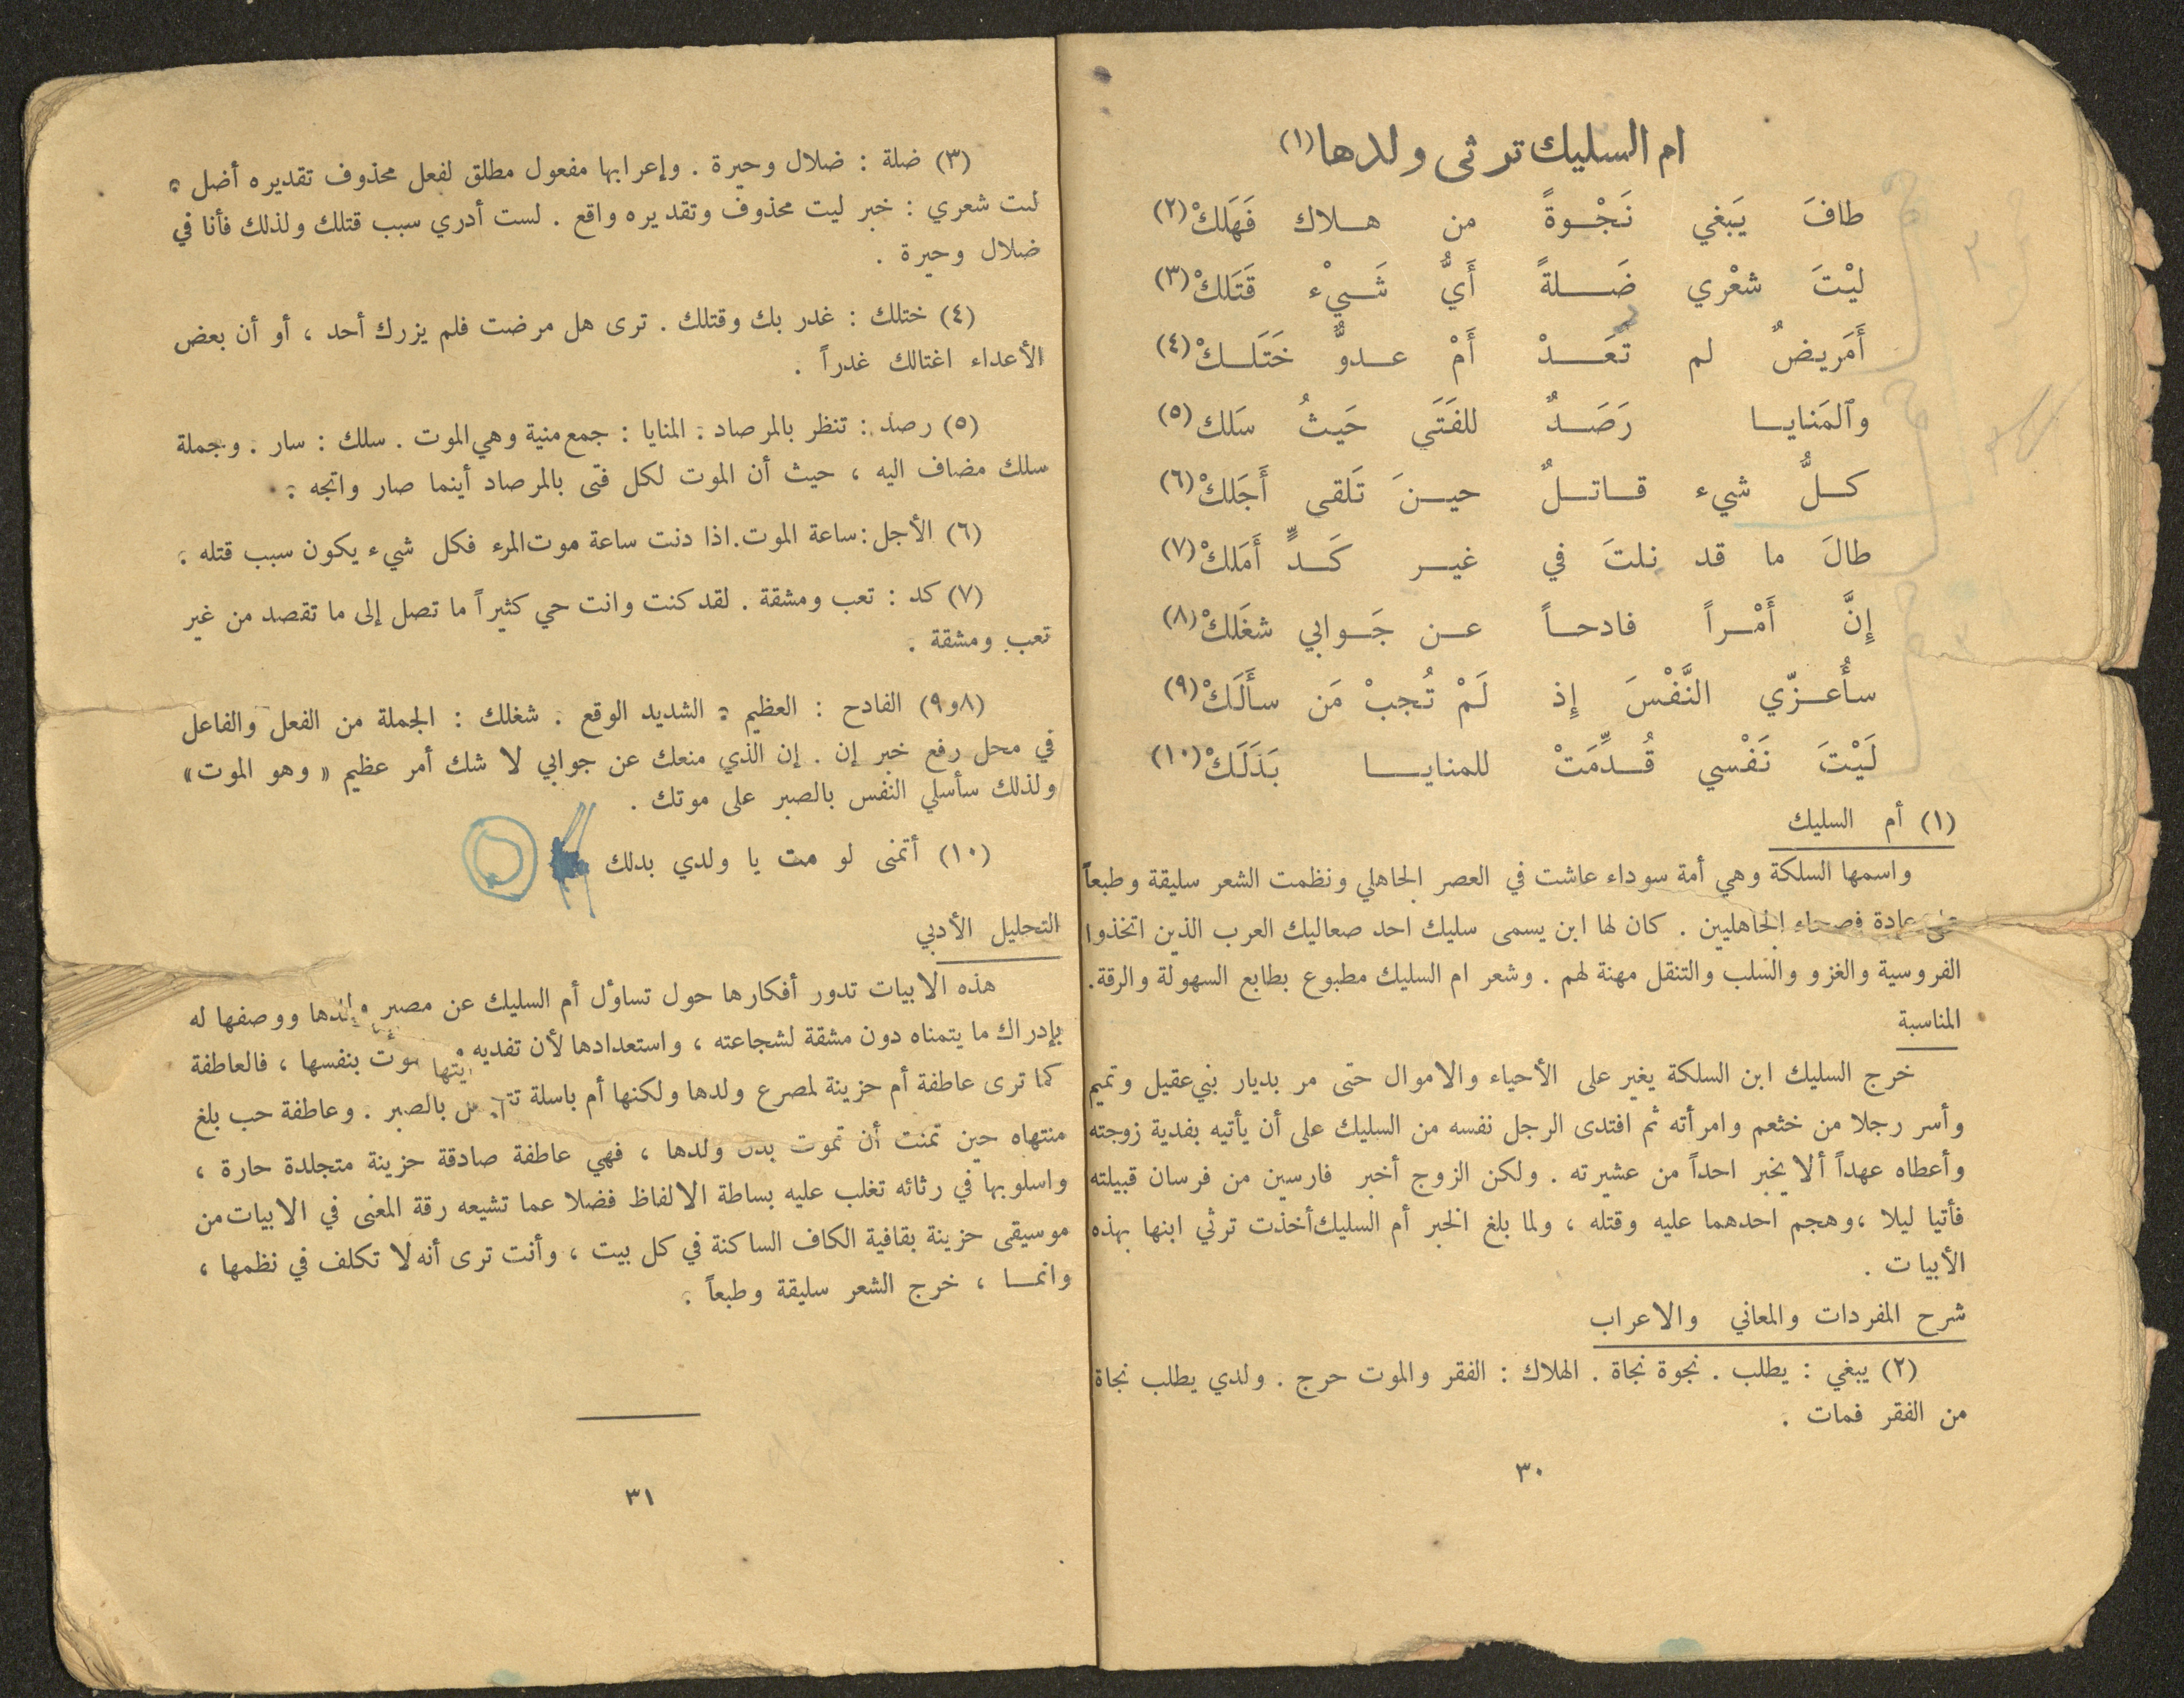 ام السليك ترثى ولدها (١)
طافَ يَبغي نَجْوةً من هلاك فَهَلَكْ (٢)
ليْتَ شعْري ضَلةً أَيُّ شَيْء قَتَلَكْ (٣)
أَمَريضٌ لم تُعَدْ أَمْ عدوٌّ خَتَلَكْ (٤)
وٱلمَنايا رَصَدٌ للفَتَى حَيثُ سَلك (٥)
كلُّ شيء قاتلٌ حينَ تَلقى أَجَلكْ (٦)
طالَ ما قد نلتَ في غير كَدٍّ أَمَلكْ (٧)
إِنَّ أَمْراً فادحاً عن جَوابي شغَلكْ (٨)
سأُعزّي النَّفْسَ إِذ لَمْ تُجبْ مَن سأَلَكْ (٩)
لَيْتَ نَفْسي قُدِّمَتْ للمنايا بَدَلَكْ (١٠)
(١) أم السليك
واسمها السلكة وهي أمة سوداء عاشت في العصر الجاهلي ونظمت الشعر سليقة وطبعاً
على عادة فصحاء الجاهليين . كان لها ابن يسمى سليك احد صعاليك العرب الذين اتخذوا
الفروسية والغزو والسلب والتنقل مهنة لهم . وشعر ام السليك مطبوع بطابع السهولة والرقة .
المناسبة
خرج السليك ابن السلكة يغير على الأحياء والاموال حتى مر بديار بني عقيل وتميم
وأسر رجلا من خثعم وامرأته ثم افتدى الرجل نفسه من السليك على أن يأتيه بفدية زوجته
وأعطاه عهداً ألا يخبر احداً من عشيرته . ولكن الزوج أخبر فارسين من فرسان قبيلته
فأتيا ليلا ، وهجم احدهما عليه وقتله ، ولما بلغ الخبر أم السليك أخذت ترثي ابنها بهذه
الأبيات .
شرح المفردات والمعاني والاعراب
(٢) يبغي : يطلب . نجوة نجاة . الهلاك : الفقر والموت حرج . ولدي يطلب نجاة
من الفقر فمات .
٣٠
(٣) ضلة : ضلال وحيرة . وإعرابها مفعول مطلق لفعل محذوف تقديره أضل .
لىت شعري : خبر ليت محذوف وتقديره واقع . لست أدري سبب قتلك ولذلك فأنا في
ضلال وحيرة .
(٤) ختلك : غدر بك وقتلك . ترى هل مرضت فلم يزرك أحد ، أو أن بعض
الأعداء اغتالك غدراً .
(٥) رصد : تنظر بالمرصاد . المنايا : جمع منية وهي الموت . سلك : سار . وجملة
سلك مضاف اليه ، حيث أن الموت لكل فتى بالمرصاد أينما صار واتجه .
(٦) الأجل : ساعة الموت . اذا دنت ساعة موت المرء فكل شيء يكون سبب قتله .
(٧) كد : تعب ومشقة . لقد كنت وانت حي كثيراً ما تصل إلى ما تقصد من غير
تعب ومشقة .
(٨و٩) الفادح : العظيم . الشديد الوقع . شغلك : الجملة من الفعل والفاعل
في محل رفع خبر إن . إن الذي منعك عن جوابي لا شك أمر عظيم « وهو الموت »
ولذلك سأسلي النفس بالصبر على موتك .
(١٠) أتمنى لو مت يا ولدي بدلك
التحليل الأدبي
هذه الابيات تدور أفكارها حول تساؤل أم السليك عن مصير ولدها ووصفها له
بإدراك ما يتمناه دون مشقة لشجاعته ، واستعدادها لأن تفديه بنفسها ، فالعاطفة
كما ترى عاطفة أم حزينة لمصرع ولدها ولكنها أم باسلة بالصبر . وعاطفة حب بلغ
منتهاه حين تمنت أن تموت بدل ولدها ، فهي عاطفة صادقة حزينة متجلدة حارة ،
واسلوبها في رثائه تغلب عليه بساطة الالفاظ فضلا عما تشيعه رقة المعنى في الابيات من
موسيقى حزينة بقافية الكاف الساكنة في كل بيت ، وأنت ترى أنه لا تكلف في نظمها ،
وانما ، خرج الشعر سليقة وطبعاً .
٣١